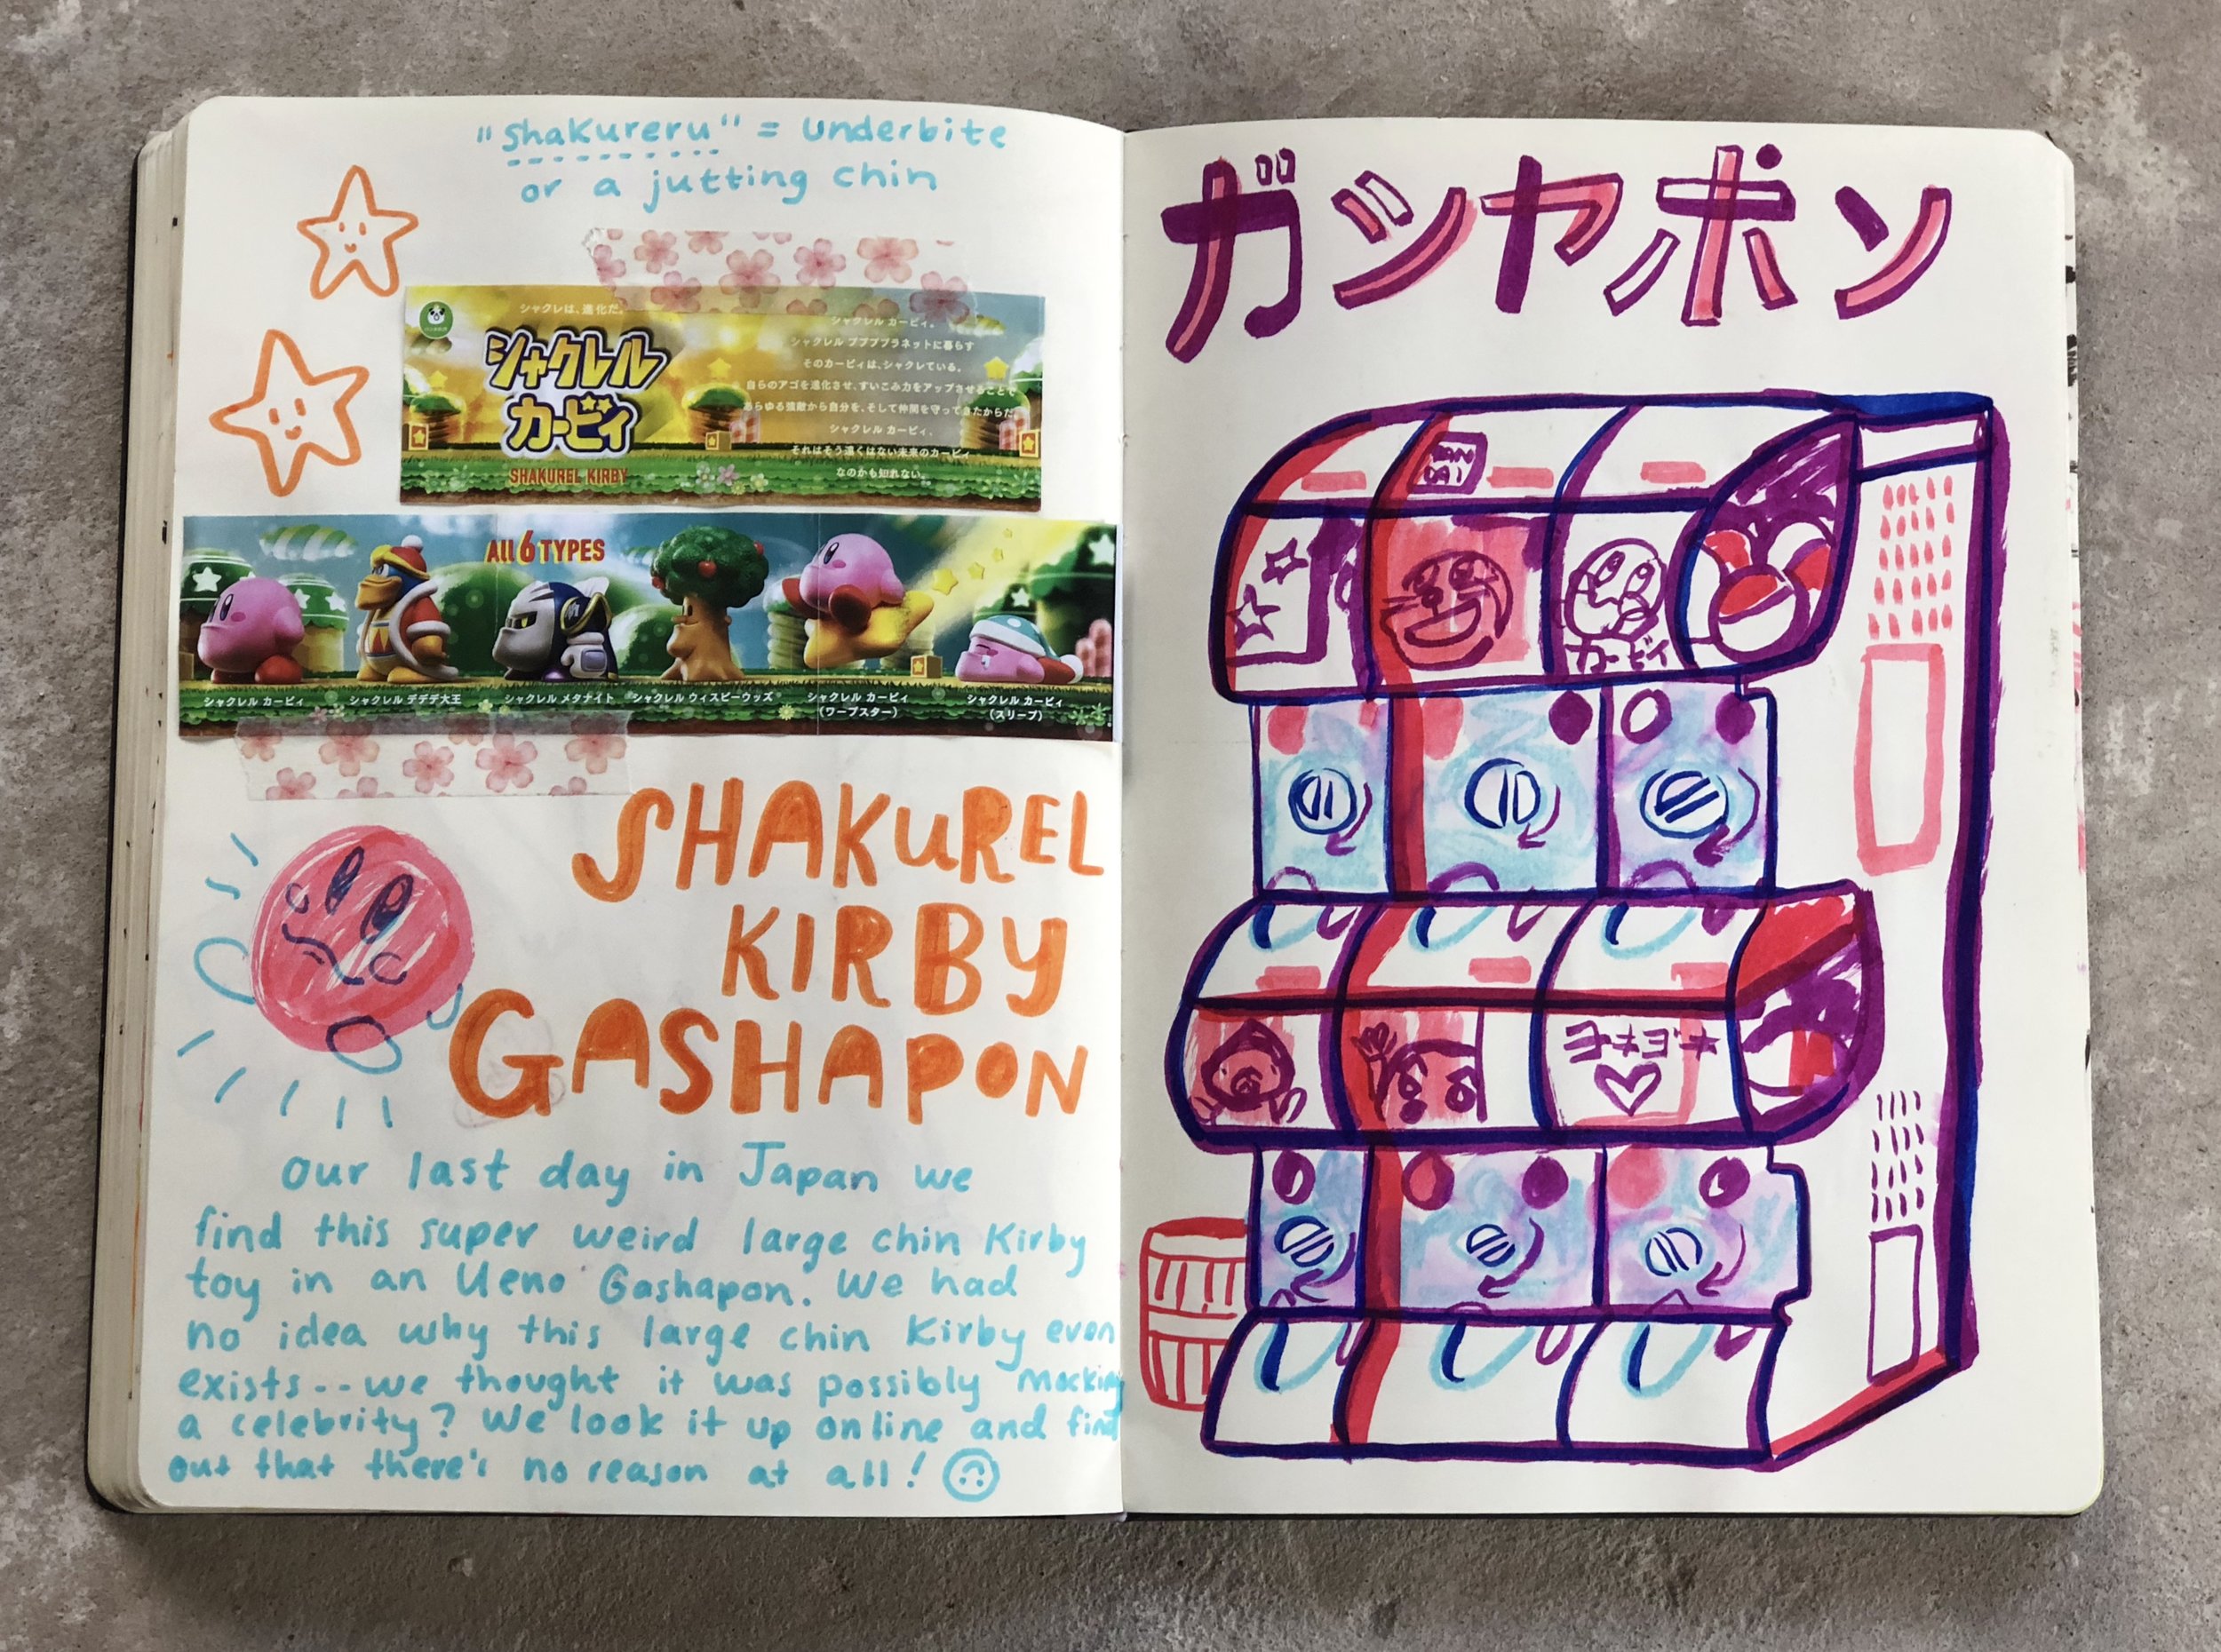 "shakureru" = underbite
or a jutting chin
シャクレは、進化だ。
シャクレル
カービィ
SHAKUREL KIRBY
シャクレル カービィ。
シャクレル ププププラネットに暮らす
そのカービィは、シャクレている。
自らのアゴを進化させ、すいこみ力をアップさせることで
あらゆる強敵から自分を、そして仲間を守ってきたからだ。
シャクレル カービィ。
それはそう遠くはない未来のカービィ
なのかも知れない。
All 6 TYPES
シャクレル カービィ
シャクレル デデデ大王
シャクレル メタナイト
シャクレル ウィスピーウッズ
シャクレル カービィ
(ワープスター)
シャクレル カービィ
(スリープ)
SHAKUREL
KIRBY
GASHAPON
our last day in Japan we
find this super weird large chin Kirby
toy in an Ueno Gashapon. We had
no idea why this large chin Kirby even
exists -- we thought it was possibly mocking
a celebrity? We look it up online and find
out that there's no reason at all!
ガシャポン
BAN
DAI
カービィ
ヨキヨキ